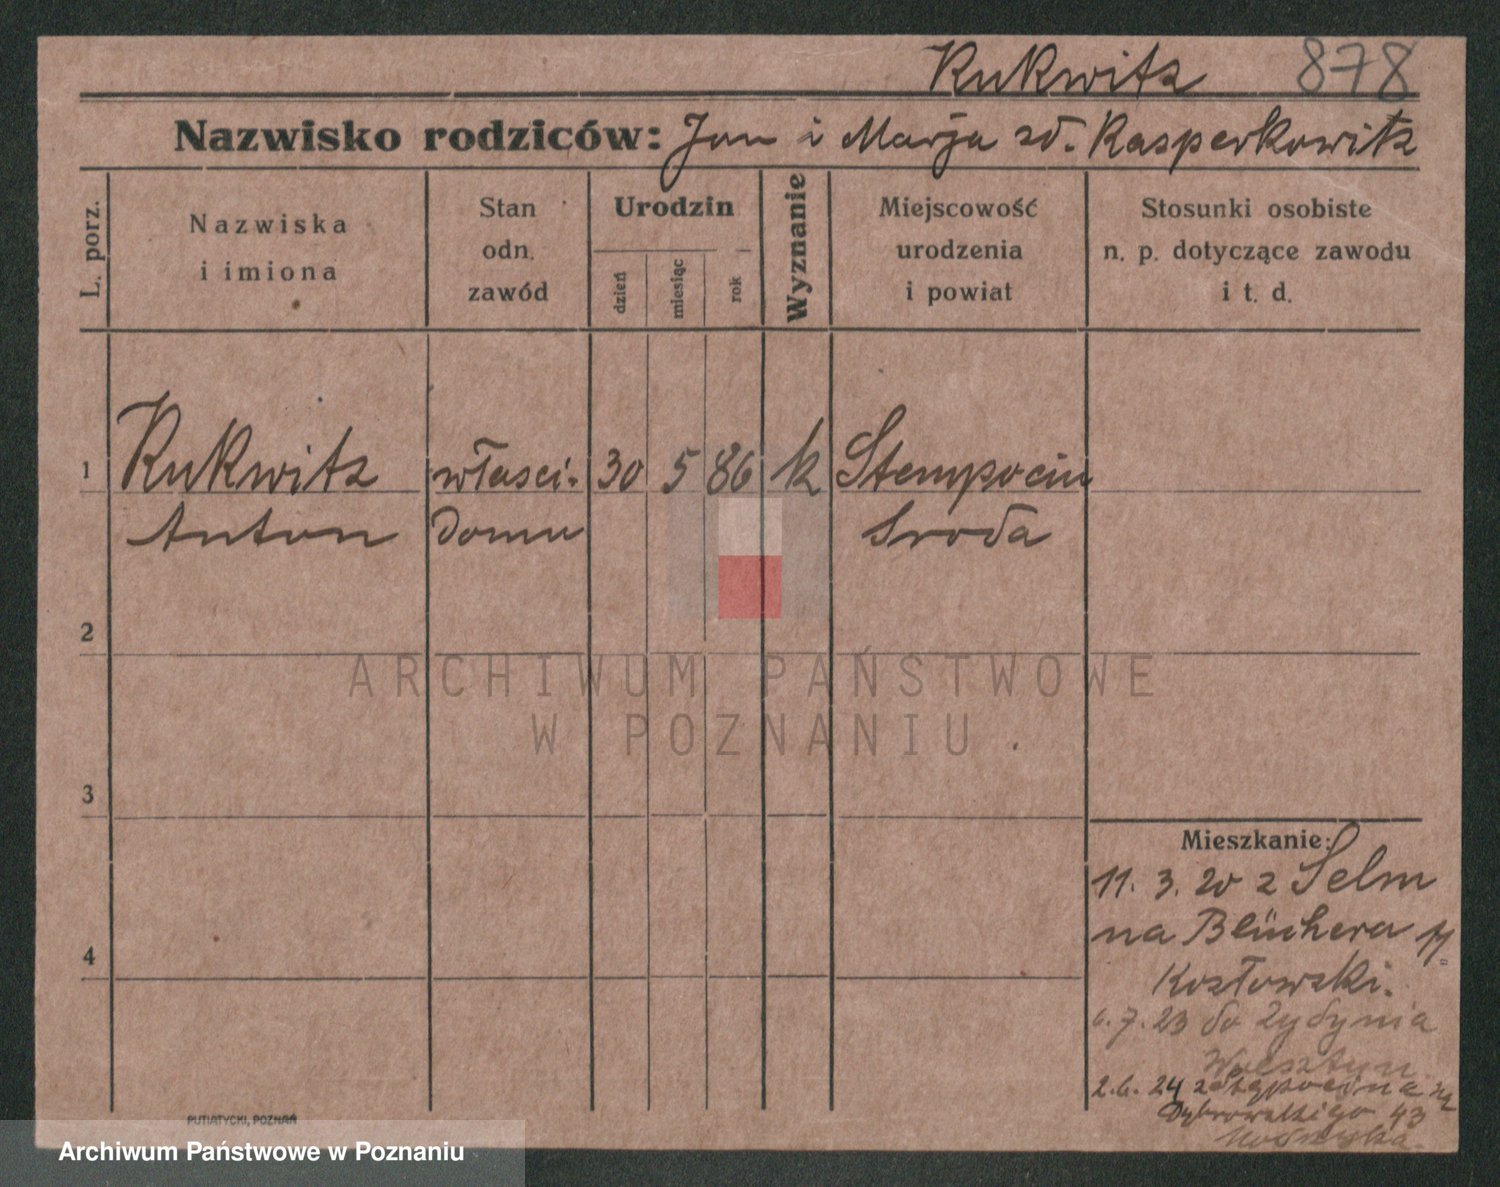 Rukwitz 878
Nazwisko rodziców: Jan i Marja zd. Kasperkowitz
L. porz.
Nazwiska
i imiona
Stan
odn.
zawód
Urodzin
dzień
miesiąc
rok
Wyznanie
Miejscowość
urodzenia
i powiat
Stosunki osobiste
n. p. dotyczące zawodu
i t. d.
1 Rukwitz właści. 30 5 86 k Stempocin
Anton domu Sroda
2
3
4
Mieszkanie:
11. 3. 20 z Selm
na Blüchera 11
Kozłowski.
6. 7. 23 do
Wolsztyn
2. 6. 24 z
Dąbrowskiego 43
PUTIATYCKI, POZNAŃ
ARCHIWUM PAŃSTWOWE
W POZNANIU.
Archiwum Państwowe w Poznaniu